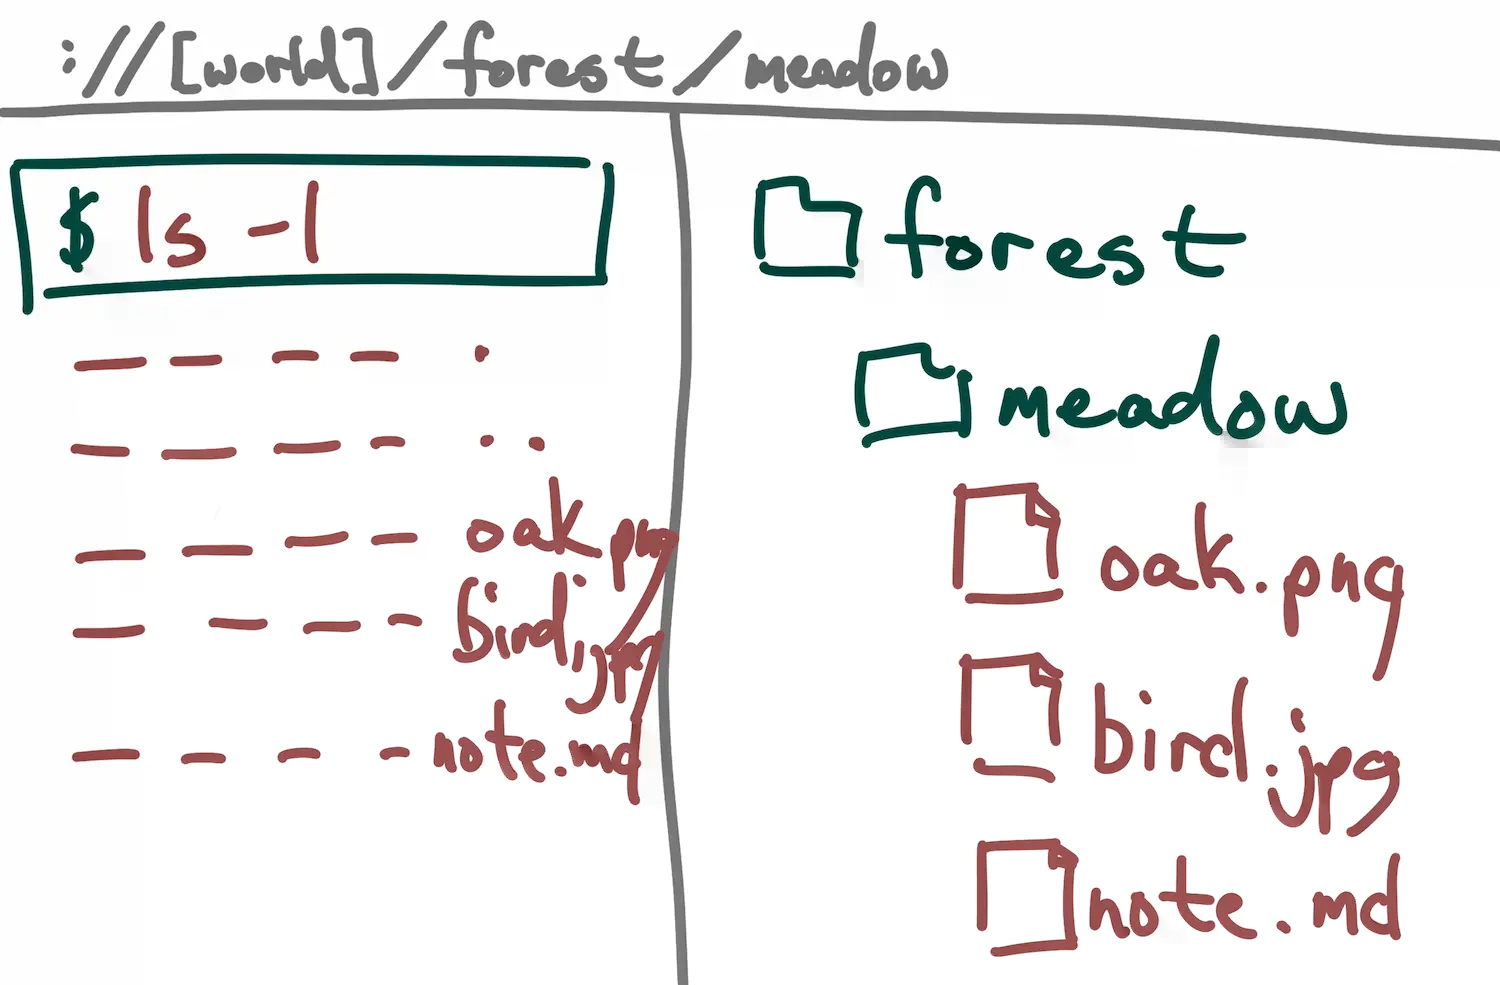 ://[world]/forest/meadow
$ ls -l
.
..
oak.png
bird.jpg
note.md
forest
meadow
oak.png
bird.jpg
note.md